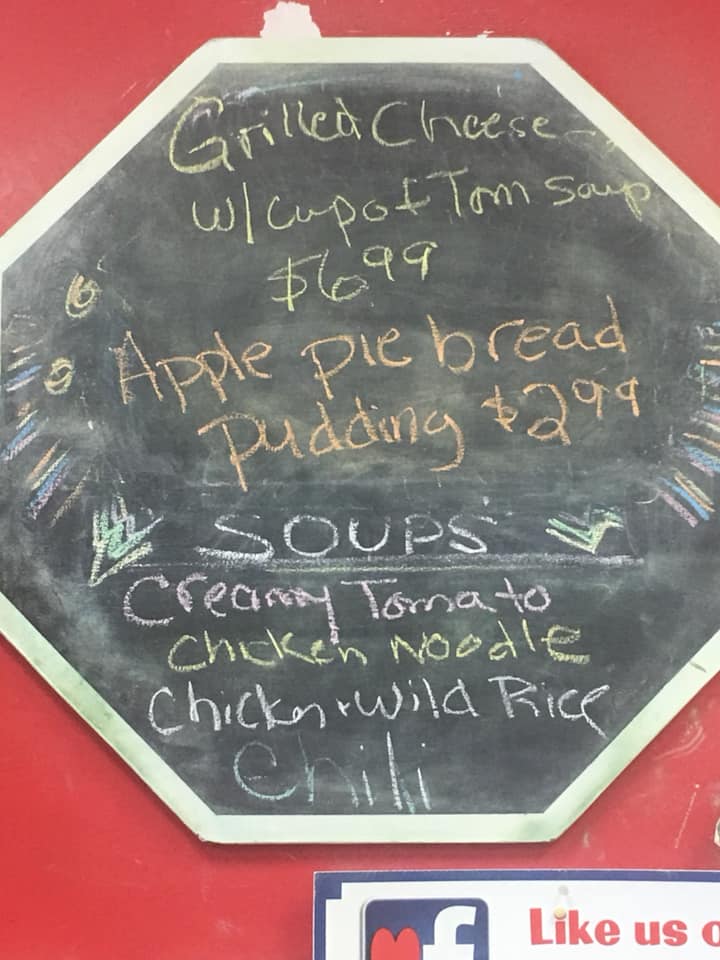 Grilled Cheese
w/ cup of Tom Soup
$6.99
Apple pie bread
pudding $2.99
SOUPS
Creamy Tomato
Chicken Noodle
Chicken + Wild Rice
Chili
f
Like us o